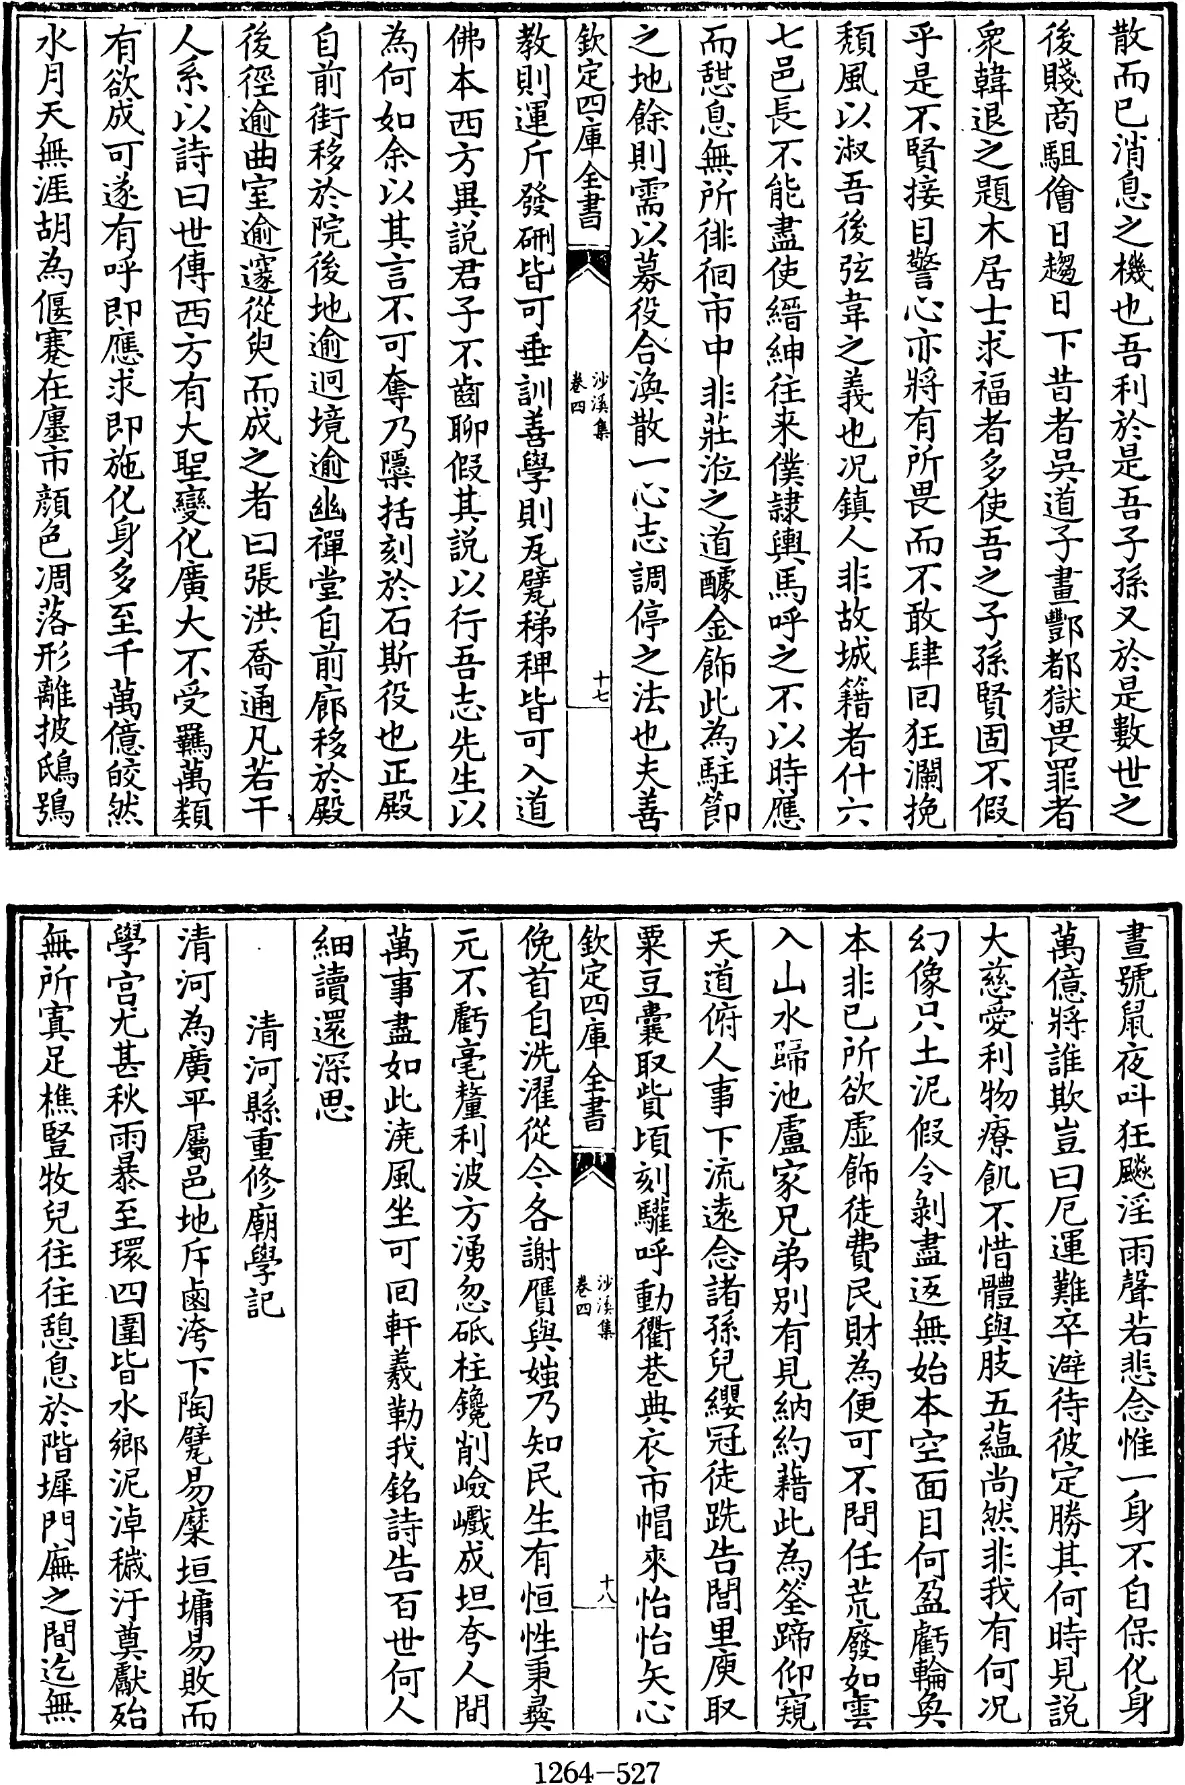 散而已消息之機也吾利於是吾子孫又於是數世之
後賤商駔儈日趨日下昔者吳道子畫酆都獄畏罪者
衆韓退之題木居士求福者多使吾之子孫賢固不假
乎是不賢接目警心亦將有所畏而不敢肆回狂瀾挽
頽風以淑吾後弦韋之義也况鎮人非故城籍者什六
七邑長不能盡使縉紳往来僕隷輿馬呼之不以時應
而憇息無所徘徊市中非莊涖之道醵金飾此為駐節
之地餘則需以募役合渙散一心志調停之法也夫善
欽定四庫全書
沙溪集
卷四
十七
教則運斤發硎皆可垂訓善學則瓦甓稊稗皆可入道
佛本西方異說君子不齒聊假其說以行吾志先生以
為何如余以其言不可奪乃檃括刻於石斯役也正殿
自前街移於院後地逾迥境逾幽禪堂自前廊移於殿
後徑逾曲室逾邃從臾而成之者曰張洪喬通凡若干
人系以詩曰世傳西方有大聖變化廣大不受羈萬類
有欲成可遂有呼即應求即施化身多至千萬億皎然
水月天無涯胡為偃蹇在廛市顔色凋落形離披鴟鴞
晝號鼠夜叫狂飈淫雨聲若悲念惟一身不自保化身
萬億將誰欺豈曰厄運難卒避待彼定勝其何時見說
大慈愛利物療飢不惜體與肢五蘊尚然非我有何况
幻像只土泥假令剝盡返無始本空面目何盈虧輪奐
本非已所欲虛飾徒費民財為便可不問任荒廢如雲
入山水歸池盧家兄弟別有見納約藉此為筌蹄仰窺
天道俯人事下流遠念諸孫兒纓冠徒跣告閭里庾取
粟豆囊取貲頃刻驩呼動衢巷典衣市帽來怡怡矢心
欽定四庫全書
沙溪集
卷四
十八
俛首自洗濯從今各謝贋與媸乃知民生有恒性秉彛
元不虧毫釐利波方湧忽砥柱鑱削嶮巇成坦夸人間
萬事盡如此澆風坐可回軒羲勒我銘詩告百世何人
細讀還深思
清河縣重修廟學記
清河為廣平屬邑地斥鹵洿下陶甓易糜垣墉易敗而
學宮尤甚秋雨暴至環四圍皆水鄉泥淖穢汙奠獻殆
無所寘足樵豎牧兒往往憩息於階墀門廡之間迄無
1264-527